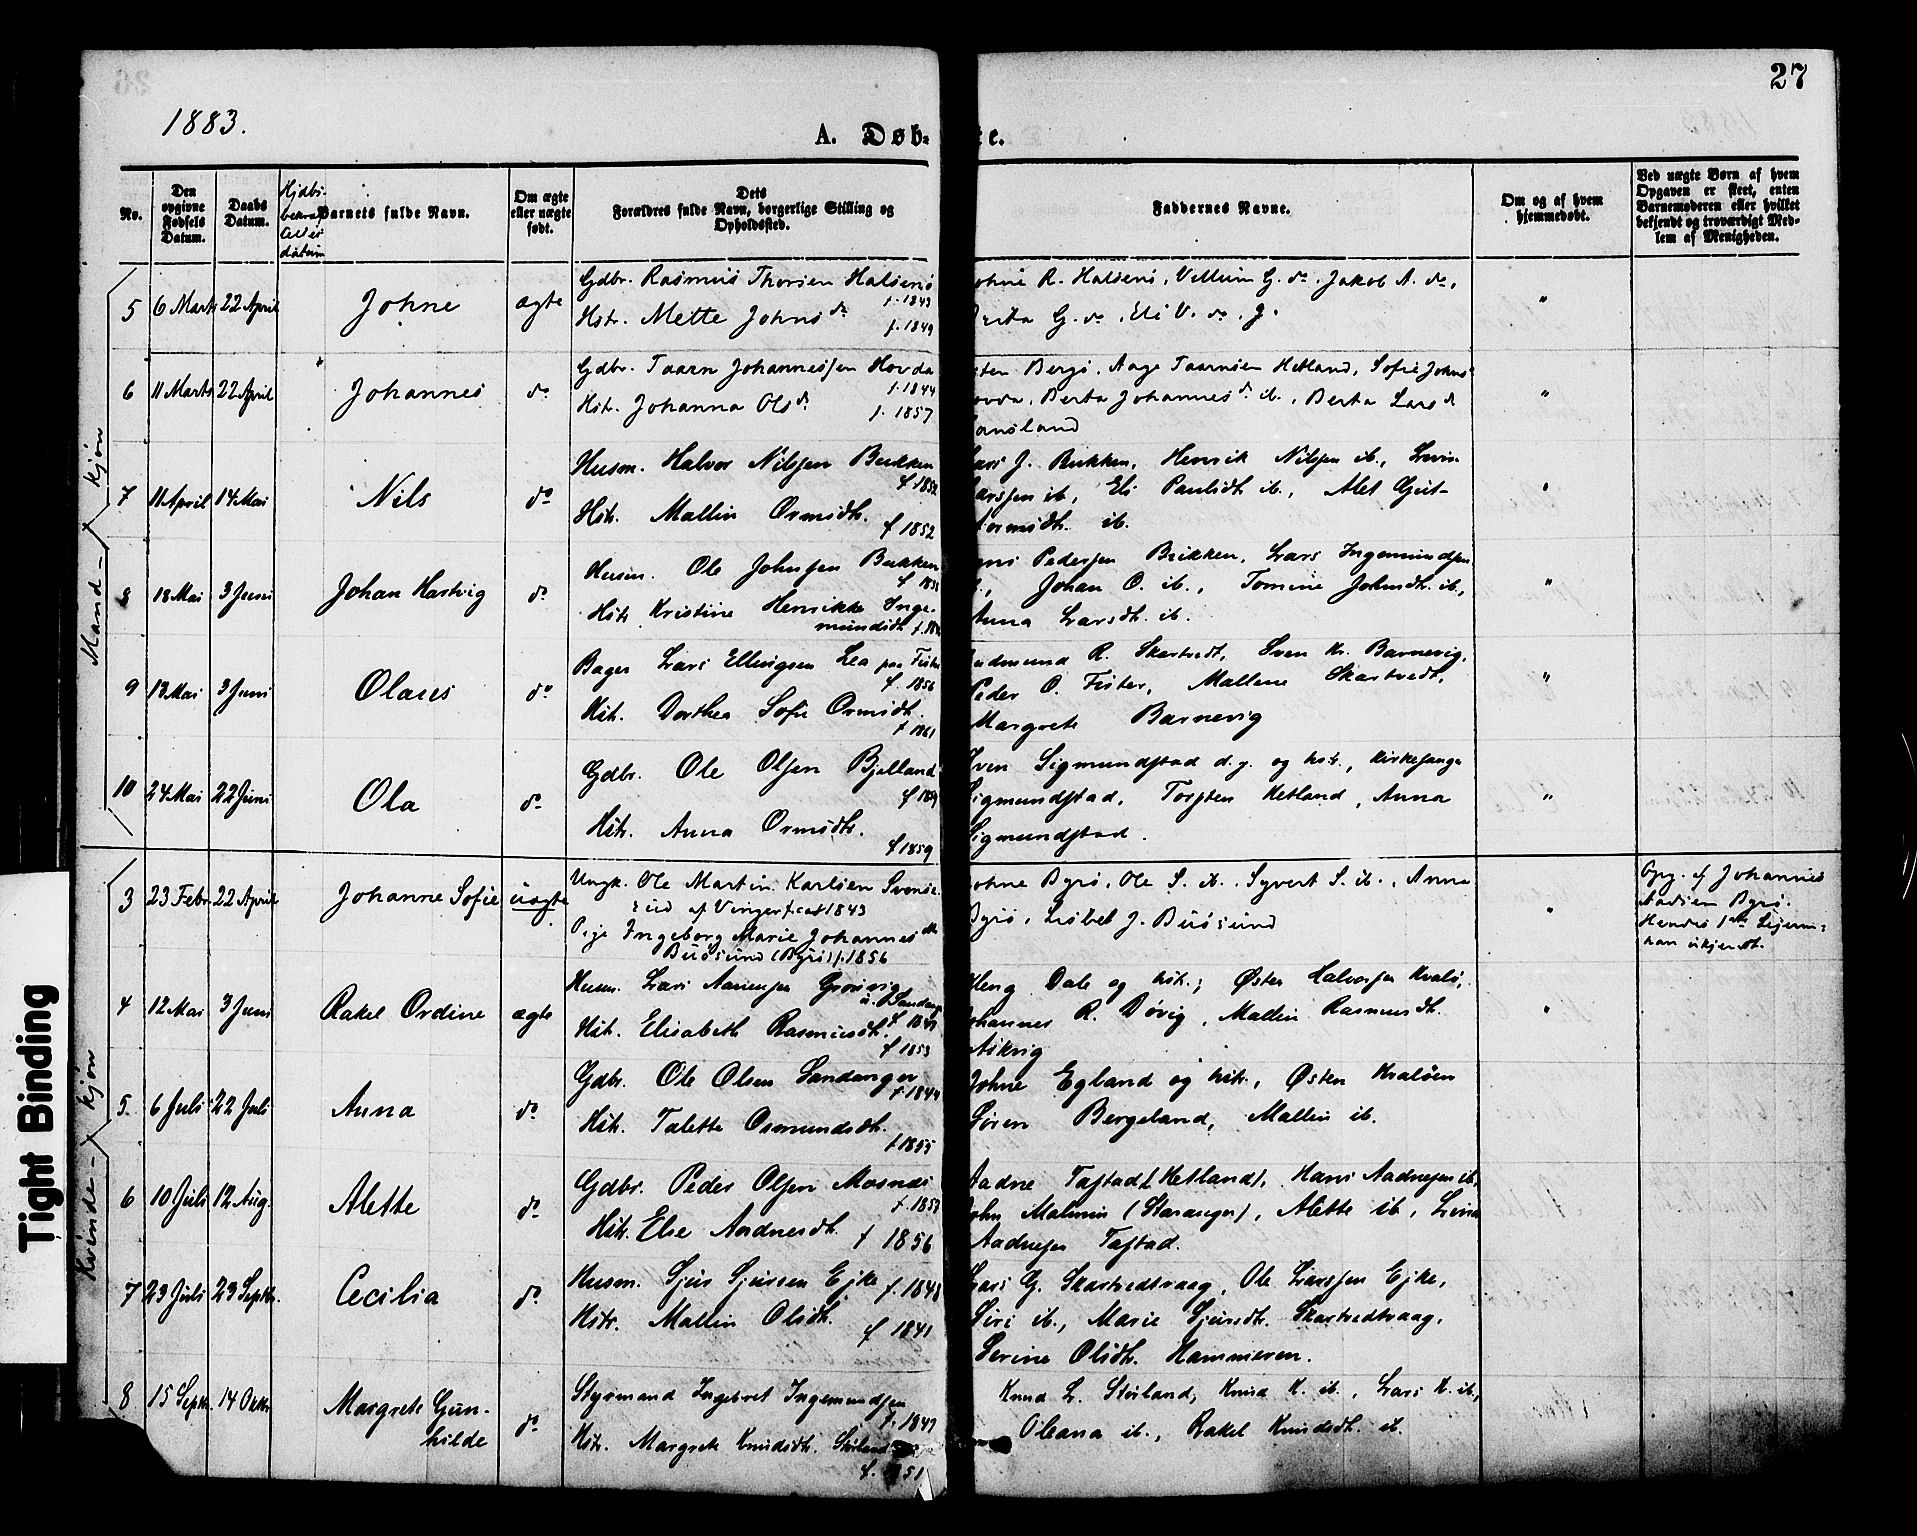 27
1883.
A. Døb-
e.
No.
Den opgivne Fødsels Datum.
Daabs Datum.
Barnets fulde Navn.
Om ægte eller uægte født.
Dets Forældres fulde Navn, borgerlige Stilling og Opholdssted.
Faddernes Navne.
Om og af hvem hjemmedøbt.
Ved uægte Børn af hvem Opgaven er skeet, enten Barnemoderen eller hvilket bekjendt og troværdigt Medlem af Menigheden.
Mand-kjøn
5 6 Marts 22 April Johne ægte
Gdbr. Rasmus Thorsen Halsenø
f. 1843
Hstr. Mette Johnsdr
f. 1849
ohne R. Halsenø, Vellum G. do, Jakob A. do,
G. do, Eli V. do,
6 11 Marts 22 April Johannes do
Gdbr. Taarn Johannessen Hovda
f. 1844
Hstr. Johanna Olsdr.
f. 1857
sten Bergø, Aage Taarnsen Hetland, Sofie Johns
ovda, Berta Johannesdr ib., Berta Larsdr
ansland
7 11 April 14 Mai Nils do
Husm. Halvor Nilsen Bukken
Hstr. Mallin Ormsdtr.
f 1852
Lars J. Bukken, Henrik Nilsen ib.,
arssen ib, Eli Paulsdtr ib., Alet Gjut-
tormsdtr. ib.
8 18 Mai 3 Juni Johan Hartvig do
Husm. Ole Johnsen Bukken
Hstr Kristine Henrikke Inge-
mundsdtr
Pedersen Bukken, Lars Ingemundsen
Johan O. ib., Tomine Johnsdtr. ib.,
Anna Larsdtr. ib.
9 13 Mai 3 Juni Olaus do
Bager Lars Ellingsen Lea paa Fister
f. 1856
Hstr. Dorthea Sofie Ormsdtr.
f 1861
udmund R. Skartvedt, Sven Kr. Barnevig,
Peder O. Fister, Mallene Skartvedt,
Margrete Barnevig
10 24 Mai 22 Juni Ola do
Gdbr. Ole Olsen Bjelland
Hstr. Anna Ormsdtr.
f 1859
Sven Sigmundstad d.y. og hstr., Kirkesanger
Sigmundstad, Torsten Hetland, Anna
Sigmundstad.
Kvinde-kjøn
3 23 Febr. 22 April Johanne Sofie uægte
Ungk. Ole Martin Karlsen Svense
rud af Vinger f. ca 1843
Pige Ingeborg Marie Johannesdtr
Busund (Byrø) f. 1856
ohne Byrø, Ole S. ib., Syvert S. ib., Anna
Byrø, Lisbet J. Busund
Opg. af Johannes
Byrø.
Hendes 1ste Leierm:
han ukjendt.
4 12 Mai 3 Juni Rakel Ordine ægte
Husm. Lars Aanensen Grønvig
u. Sandanger
Hstr. Elisabeth Rasmusdtr.
f 1853
Heng Dale og hstr., Østen Halvorsen Kvalø,
ohannes R. Døvig, Mallin Rasmusdtr.
Askvig
5. 6 Juli 22 Juli Anna do
Gdbr. Ole Olsen Sandanger
f 1844
Hstr. Talette Osmundsdtr.
f 1855
Johne Egland og hstr., Østen Kvaløen
Søren Bergeland, Mallin ib.
6 10 Juli 12 Aug. Alette do
Gdbr. Peder Olsen Mosnes
f 1857
Hstr. Else Aadnesdtr. f 1856
Aadne Tastad (Hetland), Hans Aadnesen ib.
ohn Malmin (Stavanger), Alette ib,
Aadnesen Tastad.
7 23 Juli 23 Septbr. Cecilia do
Husm. Sjur Sjursen Ejke f. 1848
Hstr. Mallin Olsdtr. f 1841
Lars G. Skartvedtvaag, Ole Larssen Ejke,
Siri ib., Marie Sjursdtr. Skartvedtvaag,
Serine Olsdtr. Hammeren.
8 15 Septbr. 14 Oktbr Margrete Gun-
hilde do
Styrmand Ingebret Ingemundsen
f. 1847
Hstr. Margrete Knudsdtr.
f. 1851
Knud L. Steinland, Knud K. ib., Lars K. ib.,
Oleana ib., Rakel Knudsdtr. ib.
Tight Binding